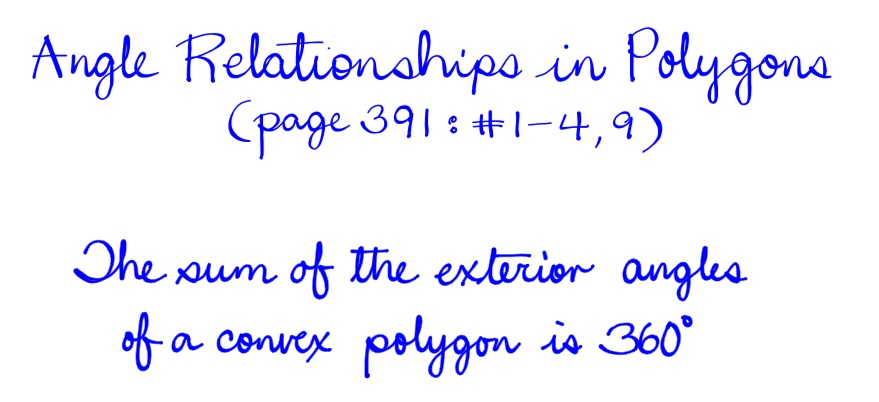 Angle Relationships in Polygons
(page 391: #1-4, 9)
The sum of the exterior angles
of a convex polygon is 360°